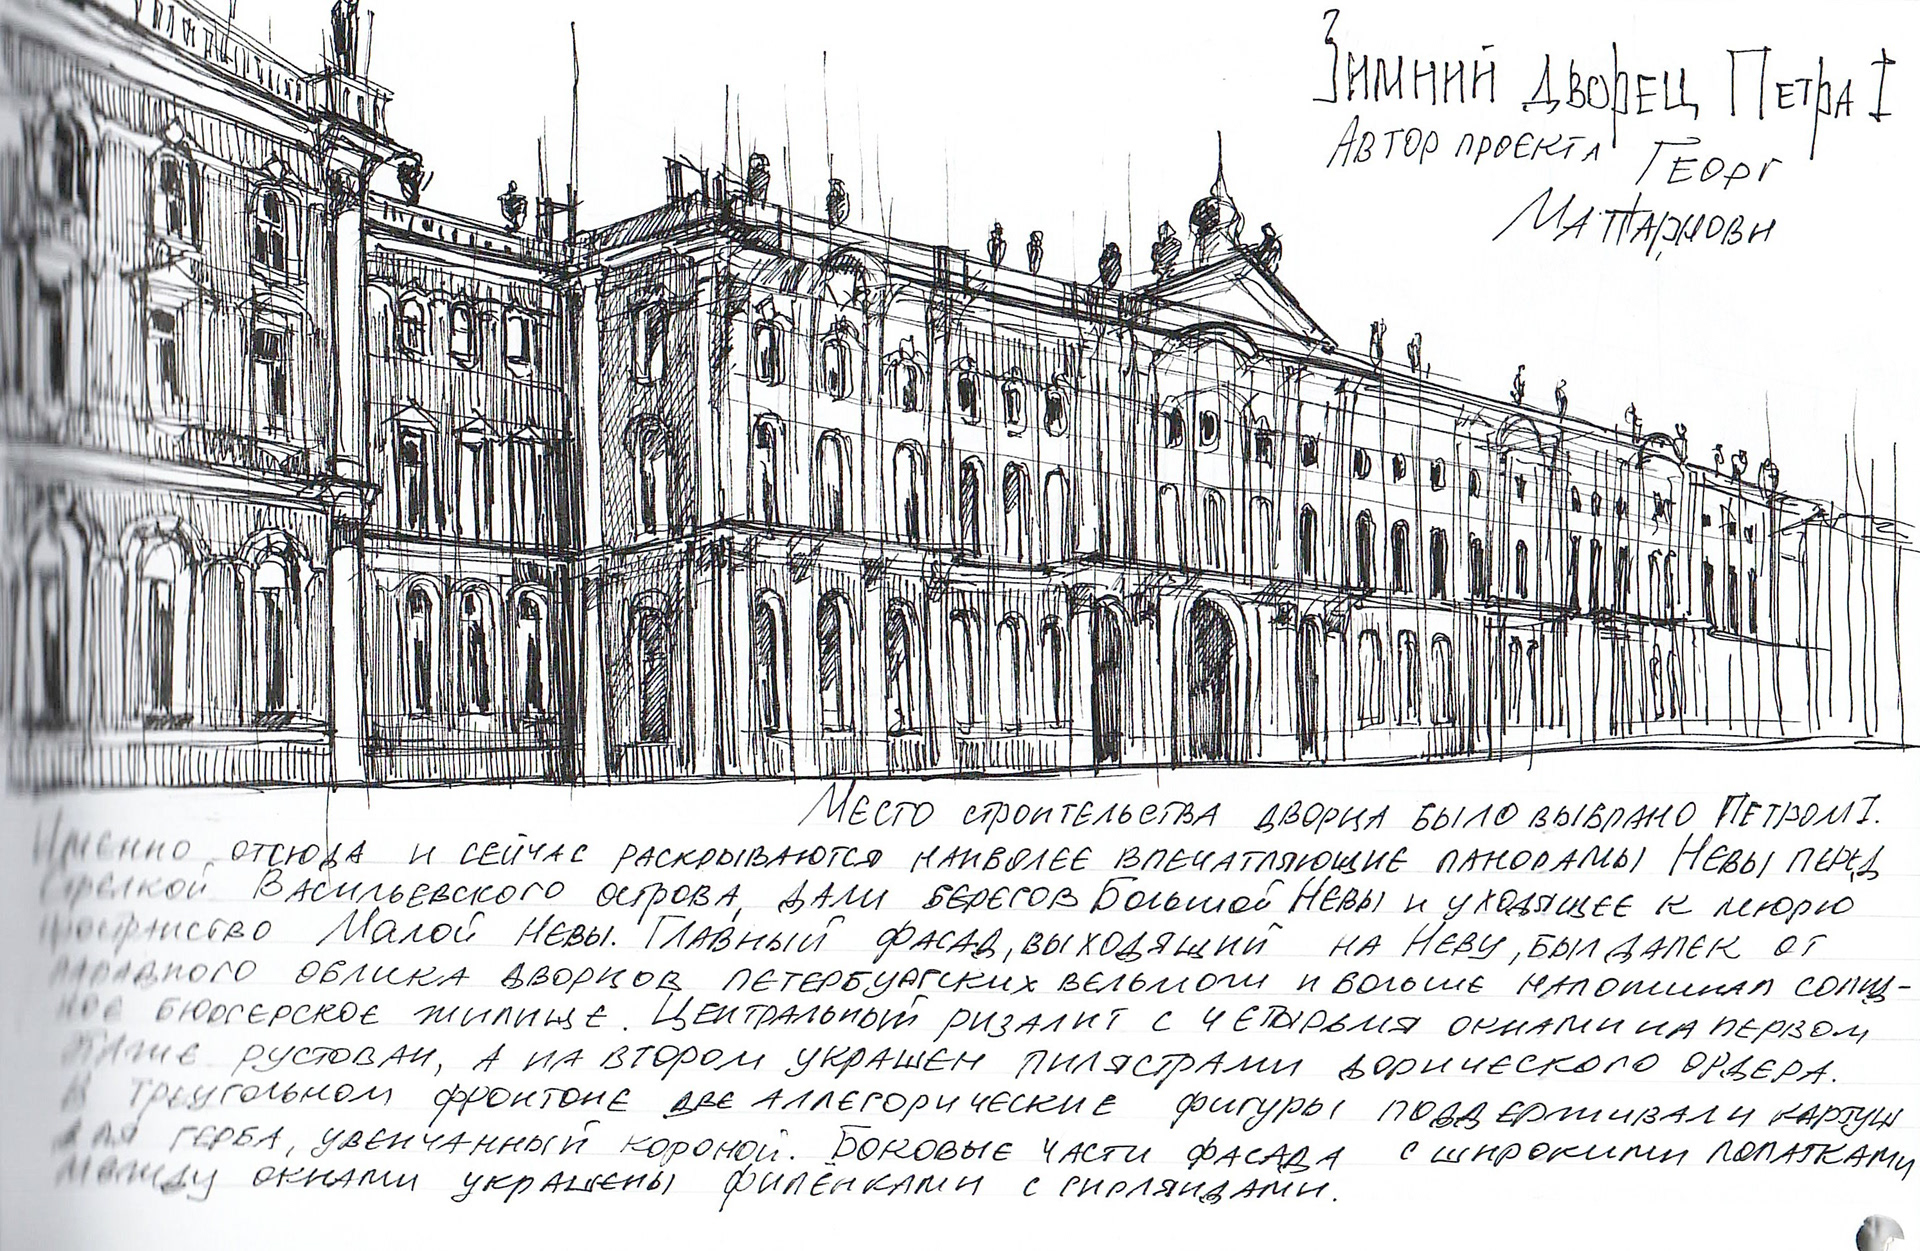 Зимний дворец Петра I
Автор проекта Георг
Маттарнови
Место строительства дворца было выбрано Петром I.
Именно отсюда и сейчас раскрываются наиболее впечатляющие панорамы Невы перед
Стрелкой Васильевского острова, дали берегов Большой Невы и уходящее к морю
пространство Малой Невы. Главный фасад, выходящий на Неву, был далек от
парадного облика дворцов петербургских вельмож и больше напоминал солид-
ное бюргерское жилище. Центральный ризалит с четырьмя окнами на первом
этаже рустован, а на втором украшен пилястрами дорического ордера.
В треугольном фронтоне две аллегорические фигуры поддерживали картуш
для герба, увенчанный короной. Боковые части фасада с широкими лопатками
между окнами украшены филёнками с гирляндами.